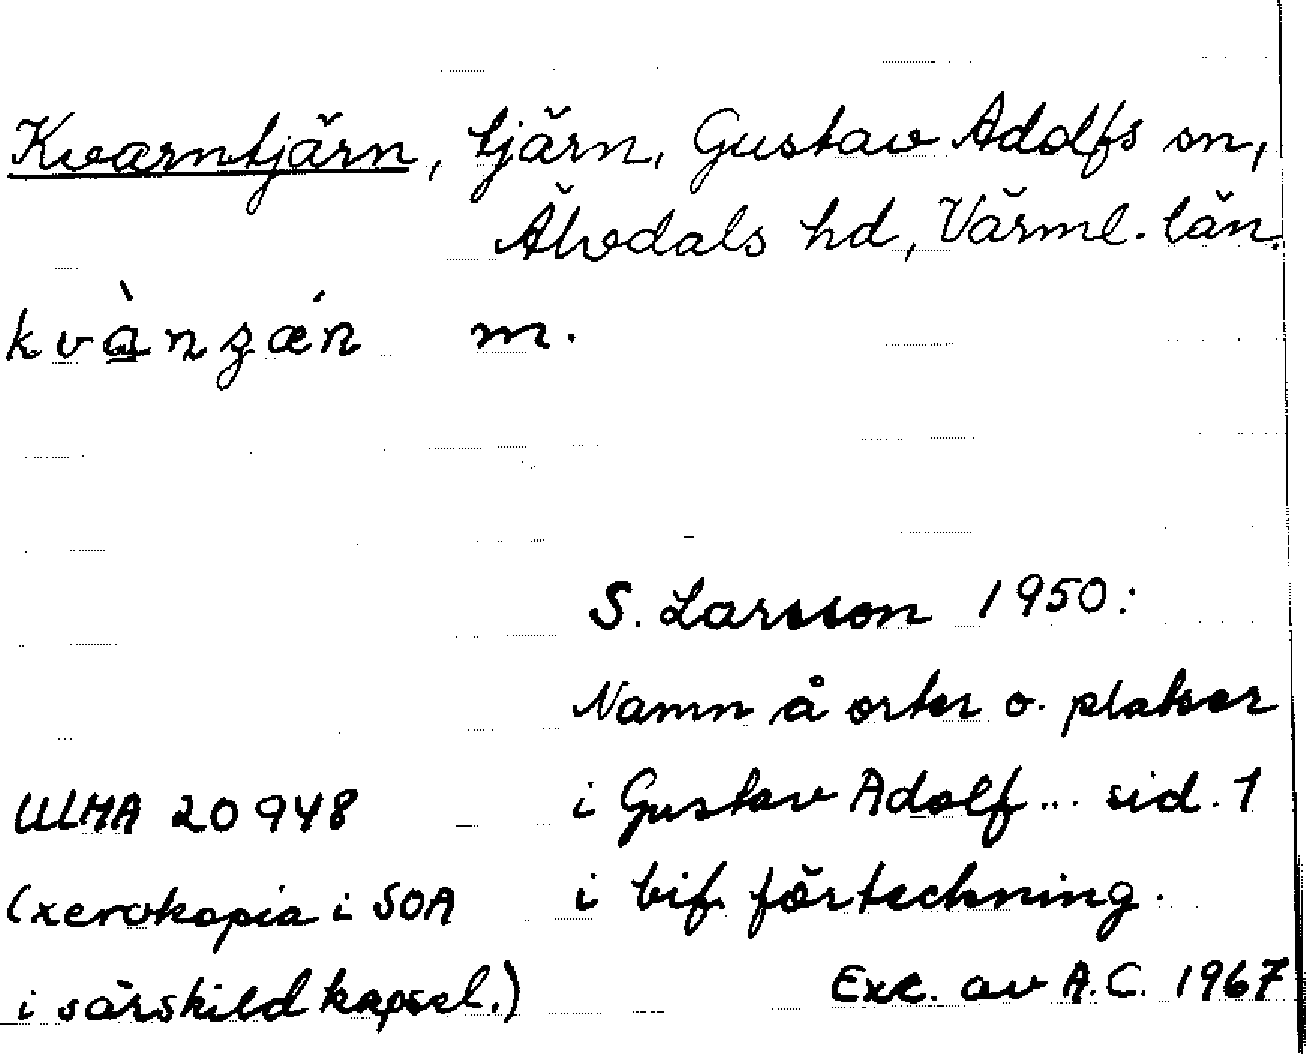 Kvarntjärn, tjärn, Gustav Adolfs sn,
Älvdals hd, Värml. län.
kvànzǽn m.
S. Larsson 1950:
Namn å orter o. platser
i Gustav Adolf... sid. 1
i bif. förteckning.
ULMA 20948
(xerokopia i SOA
i särskild kapsel.)
Exc. av A.C. 1967